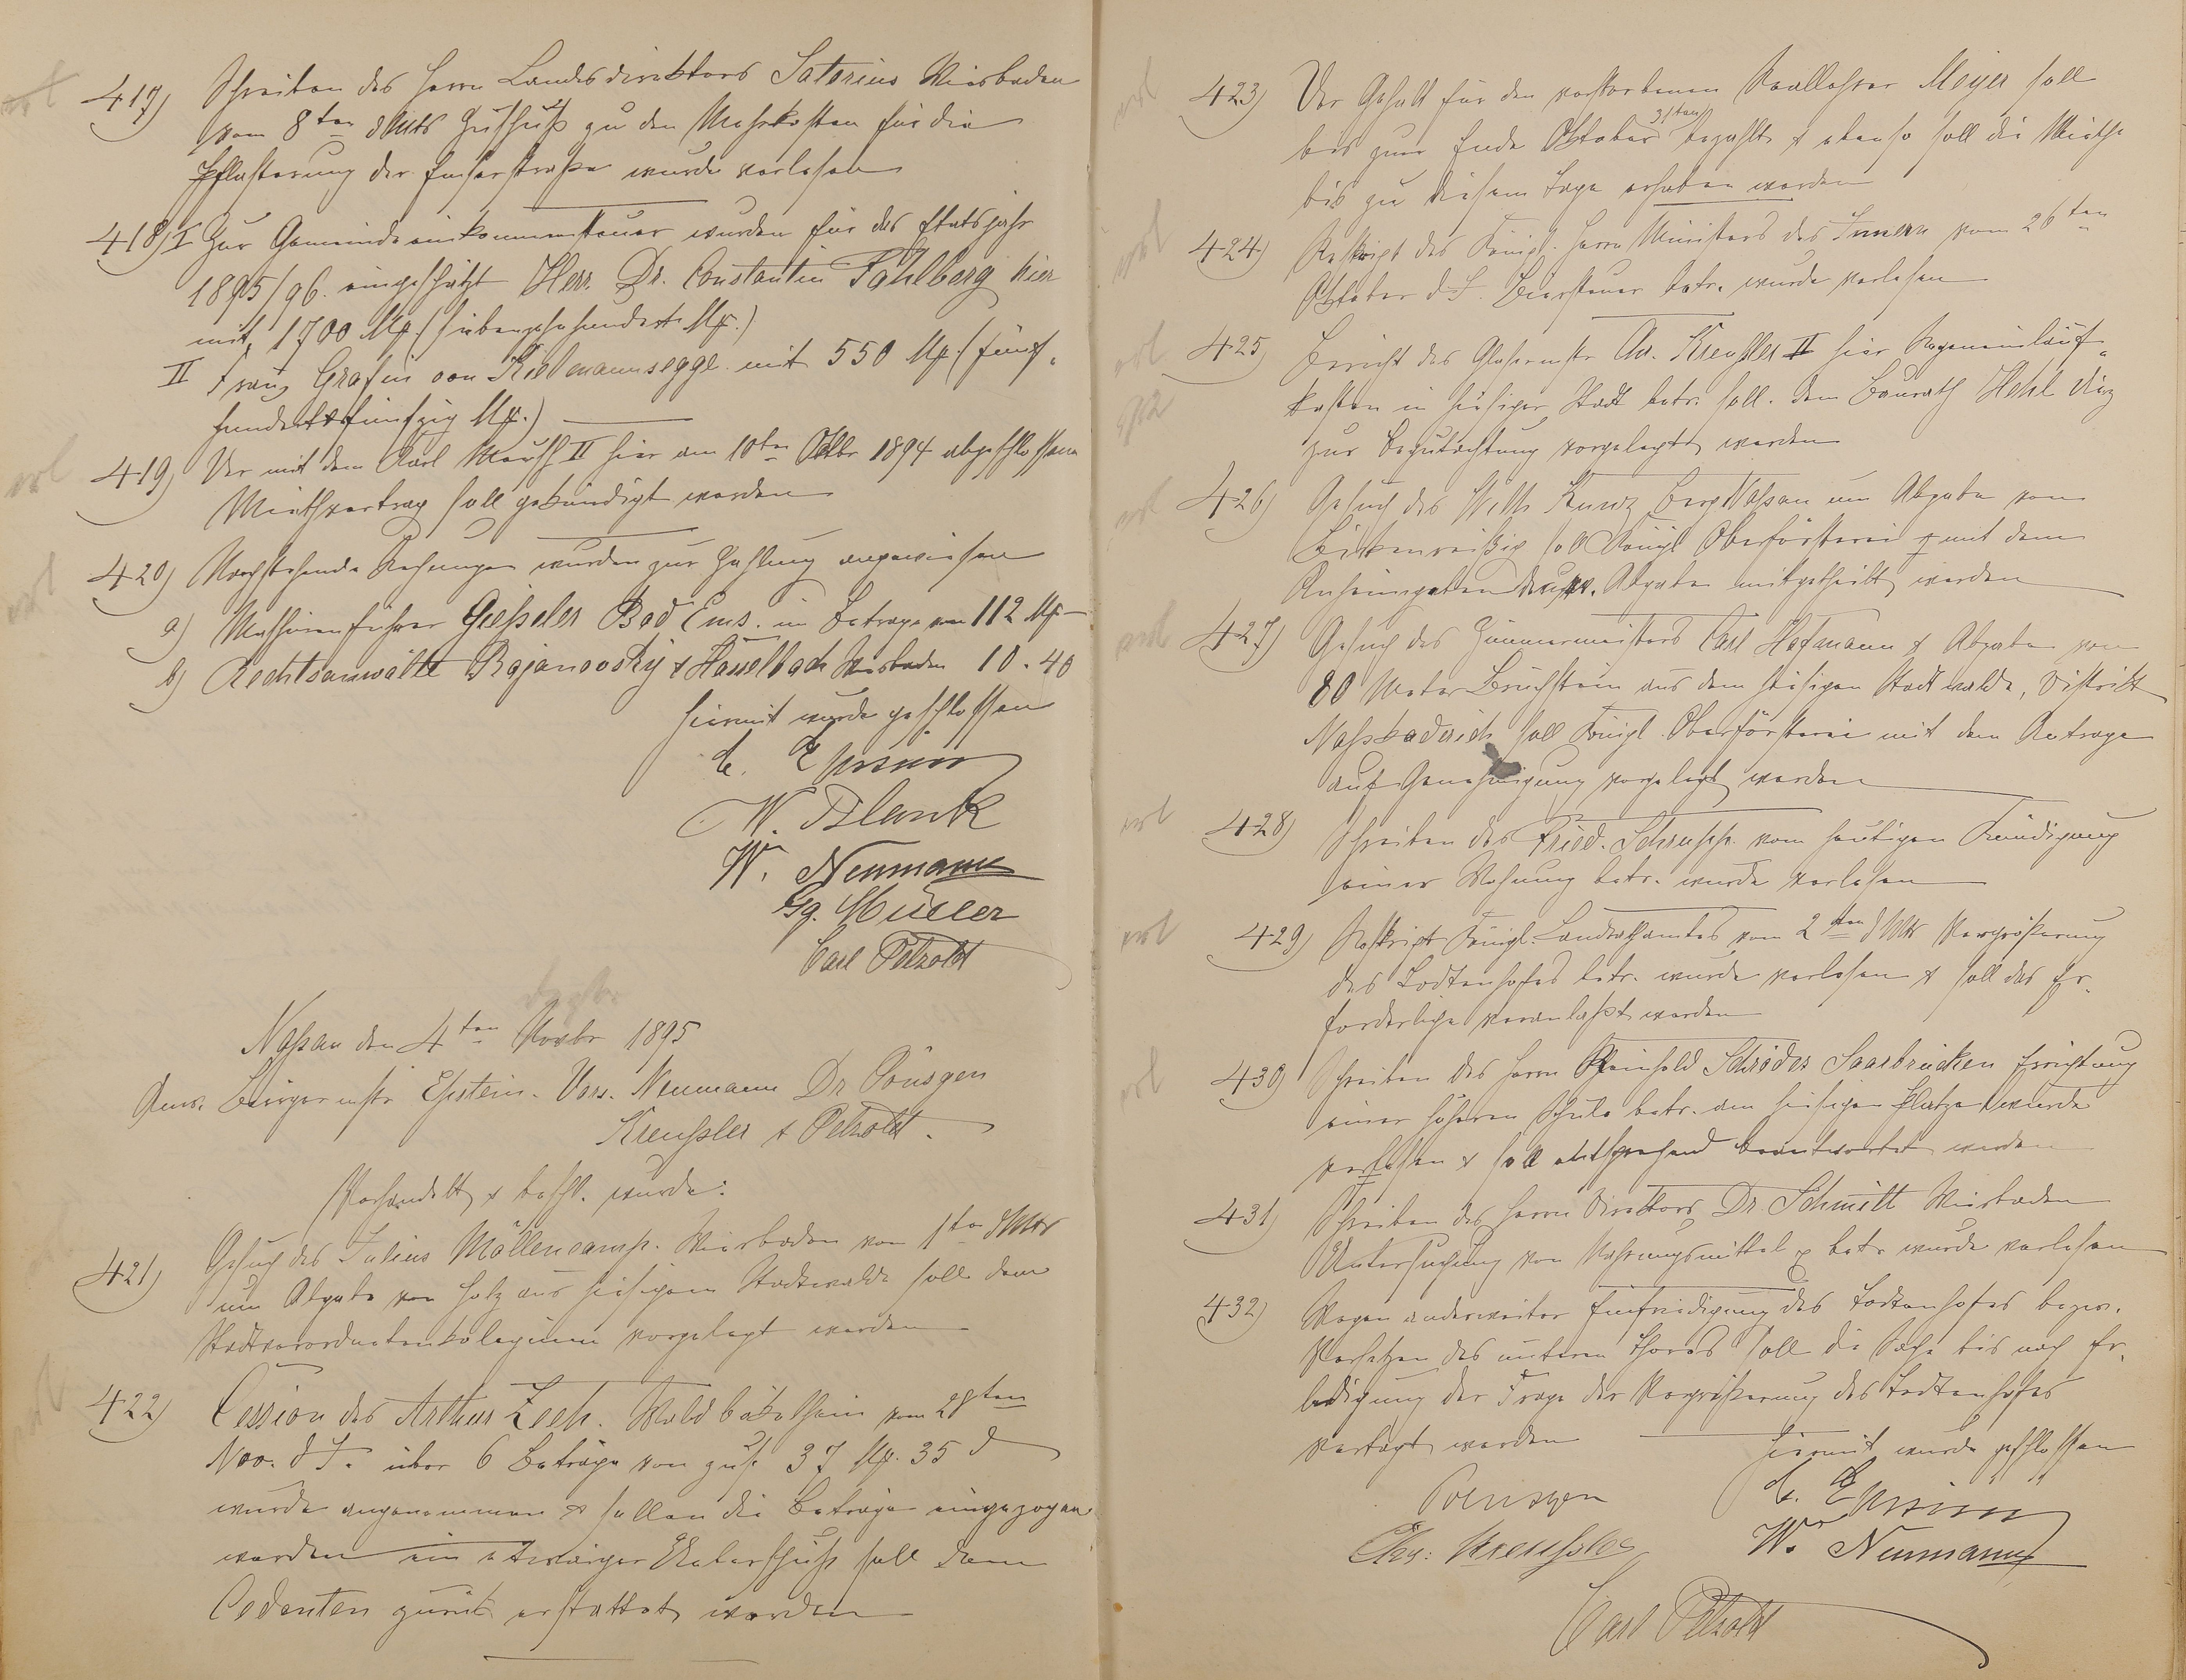 417) Schreiben des Herrn Landesdirektors Satorius Wiesbaden
vom 8ten d Mts Zuschuß zu den Mehrkosten für die
Pflasterung der Emserstraße wurde verlesen
418) I Zur Gemeindeeinkommensteuer wurden für das Etatsjahr
1895/96. eingeschätzt Herr. Dr. Constantin Fahlberg hier
mit 1700 Mk. (siebenzehnhundert Mk.)
II Franz Grafin von Kielmannsegge mit 550 Mk. (fünf-
hundert & fünfzig Mk.)
419) Der mit dem Karl Mauß II hier am 10ten Oktbr 1894 abgeschlossene
Miethvertrag soll gekündigt werden
420) Nachstehende Rechnungen wurden zur Zahlung angewiesen
a) Maschinenführer Gießeler Bad Ems. im Betrage von 112 Mk
b) Rechtsanwälte Bojanovsky & Hasselbach Wiesbaden 10.40
hiermit wurde geschlossen
W. Blank
W. Neumann
Gg. Müller
Carl Petzold
Naßau den 4ten Novbr 1895
Anw. Bürgermstr Epstein. Vors. Neumann Dr Poensgen
Kreußler & Petzold.
Verhandelt & beschl. wurde:
421) Gesuch des Julius Möllencamp. Wiesbaden vom 1ten d Mts
um Abgabe von Holz aus hiesigem Stadtwalde soll dem
Stadtverordnetenkolegium vorgelegt werden
422) Cession des Arthur Zech. Waldböckelheim vom 28ten
Nov. d J. über 6 Beträge von zus. 37 Mk. 35 d
wurde angenommen & sollen die Beträge eingezogen
werden ein etwaiger Ueberschuß soll dem
Cedenten zurück erstattet werden
423) Der Gehalt für den verstorbenen Reallehrer Meyer soll
31ten
bis zum Ende Oktober bezahlt & ebenso soll die Miethe
bis zu diesem Tage erhoben werden
424) Reskript des Königl. Herrn Ministers des Innern vom 26ten
Oktober d J. Biersteuer betr. wurde verlesen
425) Bericht des Glasermstr Chr. Kreußler II hier Regeneinlauf-
kasten in hiesiger Stadt betr. soll. dem Baurath Hehl Diez
zur Begutachtung vorgelegt werden
426) Gesuch des Wilh Kunz BergNaßau um Abgabe von
Birkenreißig soll Königl Oberförsterei mit dem
Anheimgeben Abgabe mitgetheilt werden
427) Gesuch des Zimmermeisters Carl Hofmann & Abgabe von
80 Meter Bruchstein aus dem hiesigen Stadtwalde, Distrikt
Naßkaderich soll Königl. Oberförsterei mit dem Antrage
auf Genehmigung vorgelegt werden
428) Schreiben des Fried. Schrupp. vom heutigen Kündigung
seiner Wohnung betr. wurde verlesen
429) Reskript Königl. Landrathamtes vom 2ten d Mts Vergrößerung
des Todtenhofes betr. wurde verlesen & soll das Er-
forderliche veranlaßt werden
430) Schreiben des Herrn Reinhold Schröder Saarbrücken Errichtung
einer höheren Schule betr. am hiesigen Platze wurde
verlesen & soll entsprechend beantwortet werden
431) Schreiben des Herrn Direktors Dr. Schmitt Wiesbaden
Untersuchung von Nahrungsmittel betr wurde verlesen
432) Wegen anderweiter Einfriedigung des Todtenhofes bezw.
Versetzen des unteren Thores soll die Sache bis nach Er-
ledigung der Frage der Vergrößerung des Todtenhofes
vertagt werden
hiermit wurde geschlossen
Poensgen
Chr: Kreußler
W. Neumann
Carl Petzold